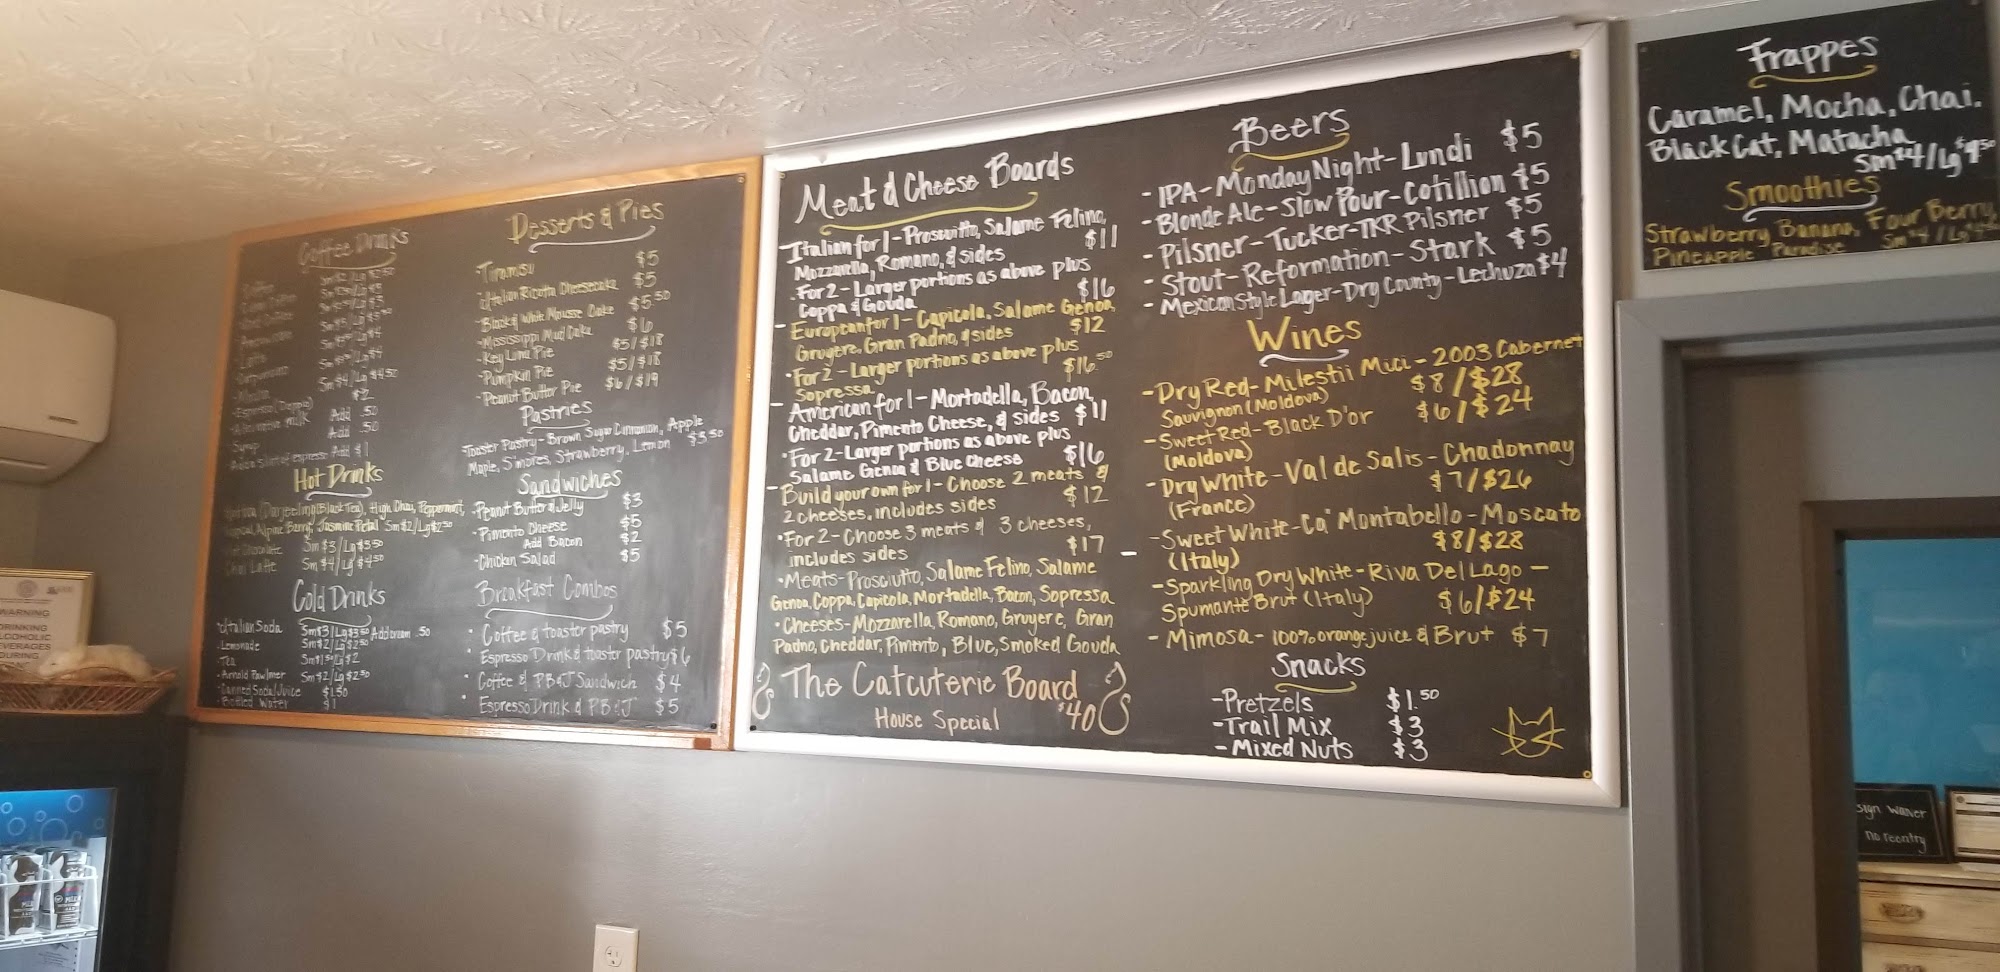 Coffee Drinks
Coffee Sm $2/Lg $2.50
Americano
Latte
Sm $4/Lg $4.50
Espresso (Doppio) $2
Alternative Milk Add .50
Syrup Add .50
Add a shot of espresso Add $1
Hot Drinks
Hot Tea (Darjeeling (Black Tea), High Chai, Peppermint,
Tropical, Alpine Berry, Jasmine Petal Sm $2/Lg $2.50
Hot Chocolate Sm $3/Lg $3.50
Chai Latte Sm $4/Lg $4.50
Cold Drinks
Italian Soda Sm $3/Lg $3.50 Add cream .50
- Lemonade Sm $2/Lg $2.50
- Tea Sm $1.50/Lg $2
- Arnold Pawlmer Sm $2/Lg $2.50
- Canned Soda/Juice $1.50
- Bottled Water $1
Desserts & Pies
- Tiramisu $5
- Italian Ricotta Cheesecake $5
- Black & White Mousse Cake $5.50
- Mississippi Mud Cake $6
- Key Lime Pie $5/$18
- Pumpkin Pie $5/$18
- Peanut Butter Pie $6/$19
Pastries
- Toaster Pastry - Brown Sugar Cinnamon, Apple
Maple, S'mores, Strawberry, Lemon $3.50
Sandwiches
- Peanut Butter & Jelly $3
- Pimento Cheese $5
Add Bacon $2
- Chicken Salad $5
Breakfast Combos
• Coffee & toaster pastry $5
• Espresso Drink & toaster pastry $6
• Coffee & PB&J Sandwich $4
• Espresso Drink & PB&J $5
Meat & Cheese Boards
- Italian for 1 - Proscuitto, Salame Felino,
Mozzarella, Romano, & sides $11
• For 2 - Larger portions as above plus
Coppa & Gouda $16
- European for 1 - Capicola, Salame Genoa,
Gruyere, Gran Padno, & sides $12
• For 2 - Larger portions as above plus
Sopressa $16.50
- American for 1 - Mortadella, Bacon,
Cheddar, Pimento Cheese, & sides $11
• For 2 - Larger portions as above plus
Salame Genoa & Blue Cheese $16
- Build your own for 1 - Choose 2 meats &
2 cheeses, includes sides $12
• For 2 - Choose 3 meats & 3 cheeses,
includes sides $17
• Meats - Prosciutto, Salame Felino, Salame
Genoa, Coppa, Capicola, Mortadella, Bacon, Sopressa
• Cheeses - Mozzarella, Romano, Gruyere, Gran
Padno, Cheddar, Pimento, Blue, Smoked Gouda
The Catcuterie Board
House Special $40
Beers
- IPA - Monday Night - Lundi $5
- Blonde Ale - Slow Pour - Cotillion $5
- Pilsner - Tucker - TKR Pilsner $5
- Stout - Reformation - Stark $5
- Mexican Style Lager - Dry County - Lechuza $4
Wines
- Dry Red - Milestii Mici - 2003 Cabernet
Sauvignon (Moldova) $8/$28
- Sweet Red - Black D'or $6/$24
(Moldova)
- Dry White - Val de Salis - Chadonnay
(France) $7/$26
- Sweet White - Ca' Montabello - Moscato
(Italy) $8/$28
- Sparkling Dry White - Riva Del Lago -
Spumante Brut (Italy) $6/$24
- Mimosa - 100% orange juice & Brut $7
Snacks
- Pretzels $1.50
- Trail Mix $3
- Mixed Nuts $3
Frappes
Caramel, Mocha, Chai,
Black Cat, Matacha
Sm $4/Lg $4.50
Smoothies
Strawberry Banana, Four Berry,
Pineapple Paradise Sm $4/Lg $4.50
WARNING
DRINKING
ALCOHOLIC
BEVERAGES
DURING
sign waiver
no reentry